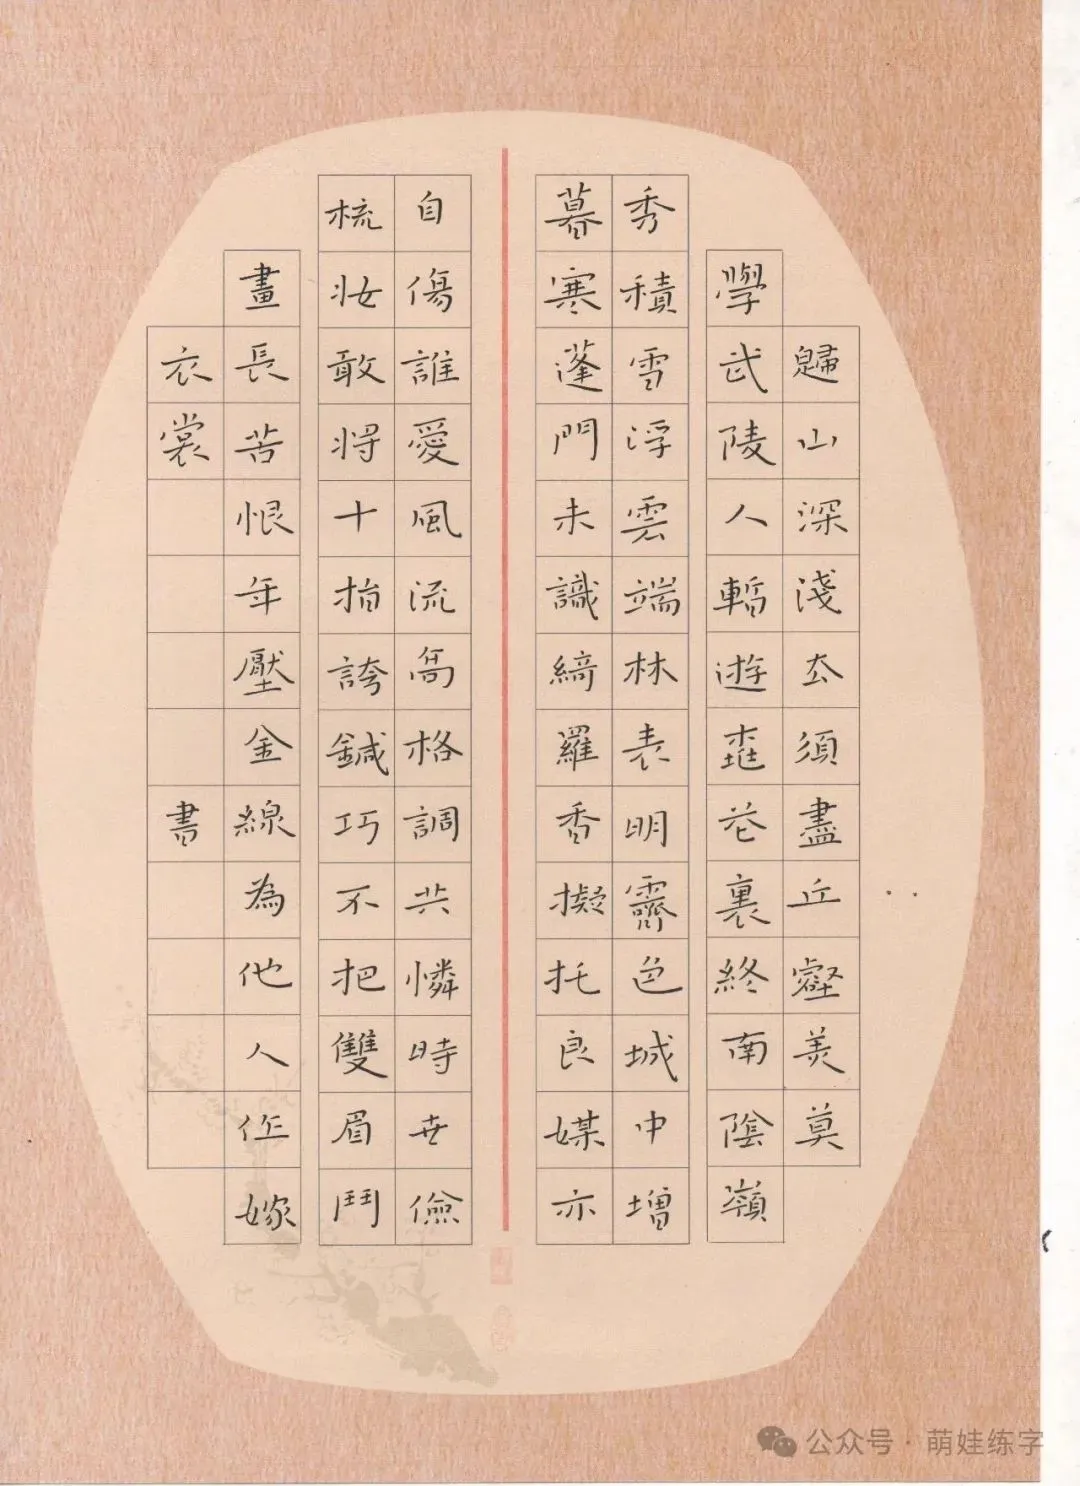 歸山深淺去須盡丘壑美莫
學武陵人暫遊桃花裏終南陰嶺
秀積雪浮雲端林表明霽色城中增
暮寒蓬門未識綺羅香擬托良媒亦
自傷誰愛風流高格調共憐時世儉
梳妆敢将十指誇鍼巧不把雙眉鬥
畫長苦恨年壓金線為他人作嫁
衣裳 書
公众号·萌娃练字